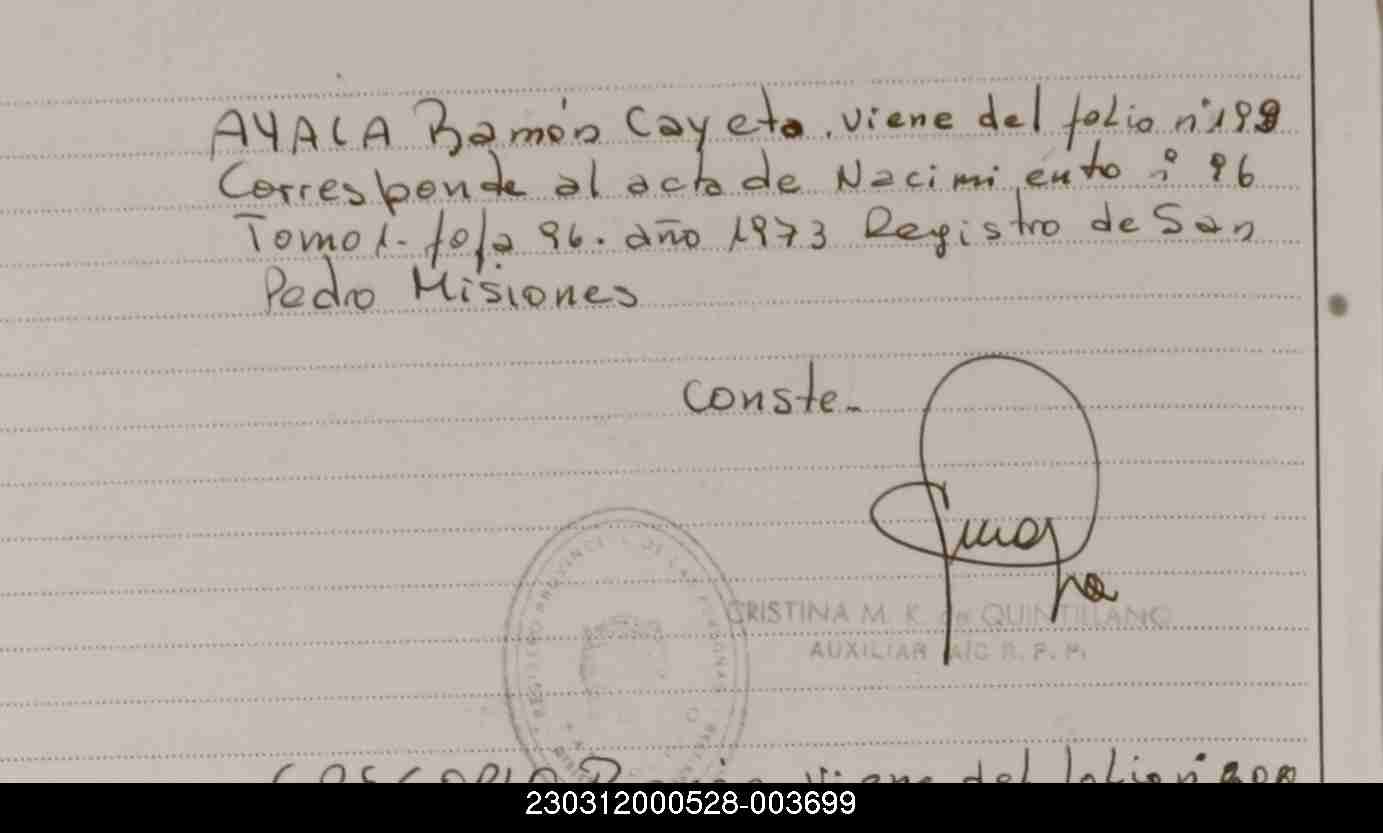 AYALA Ramón Cayeto. viene del folio nº 199
Corresponde al acta de Nacimiento º 96
Tomo 1. foja 96. año 1973 Registro de San
Pedro Misiones
Conste.
CRISTINA M. K. de QUINTILLANO
AUXILIAR A/C R. P. P.
REGISTRO PROVINCIAL DE LAS PERSONAS
viene del folio nº 200
230312000528-003699